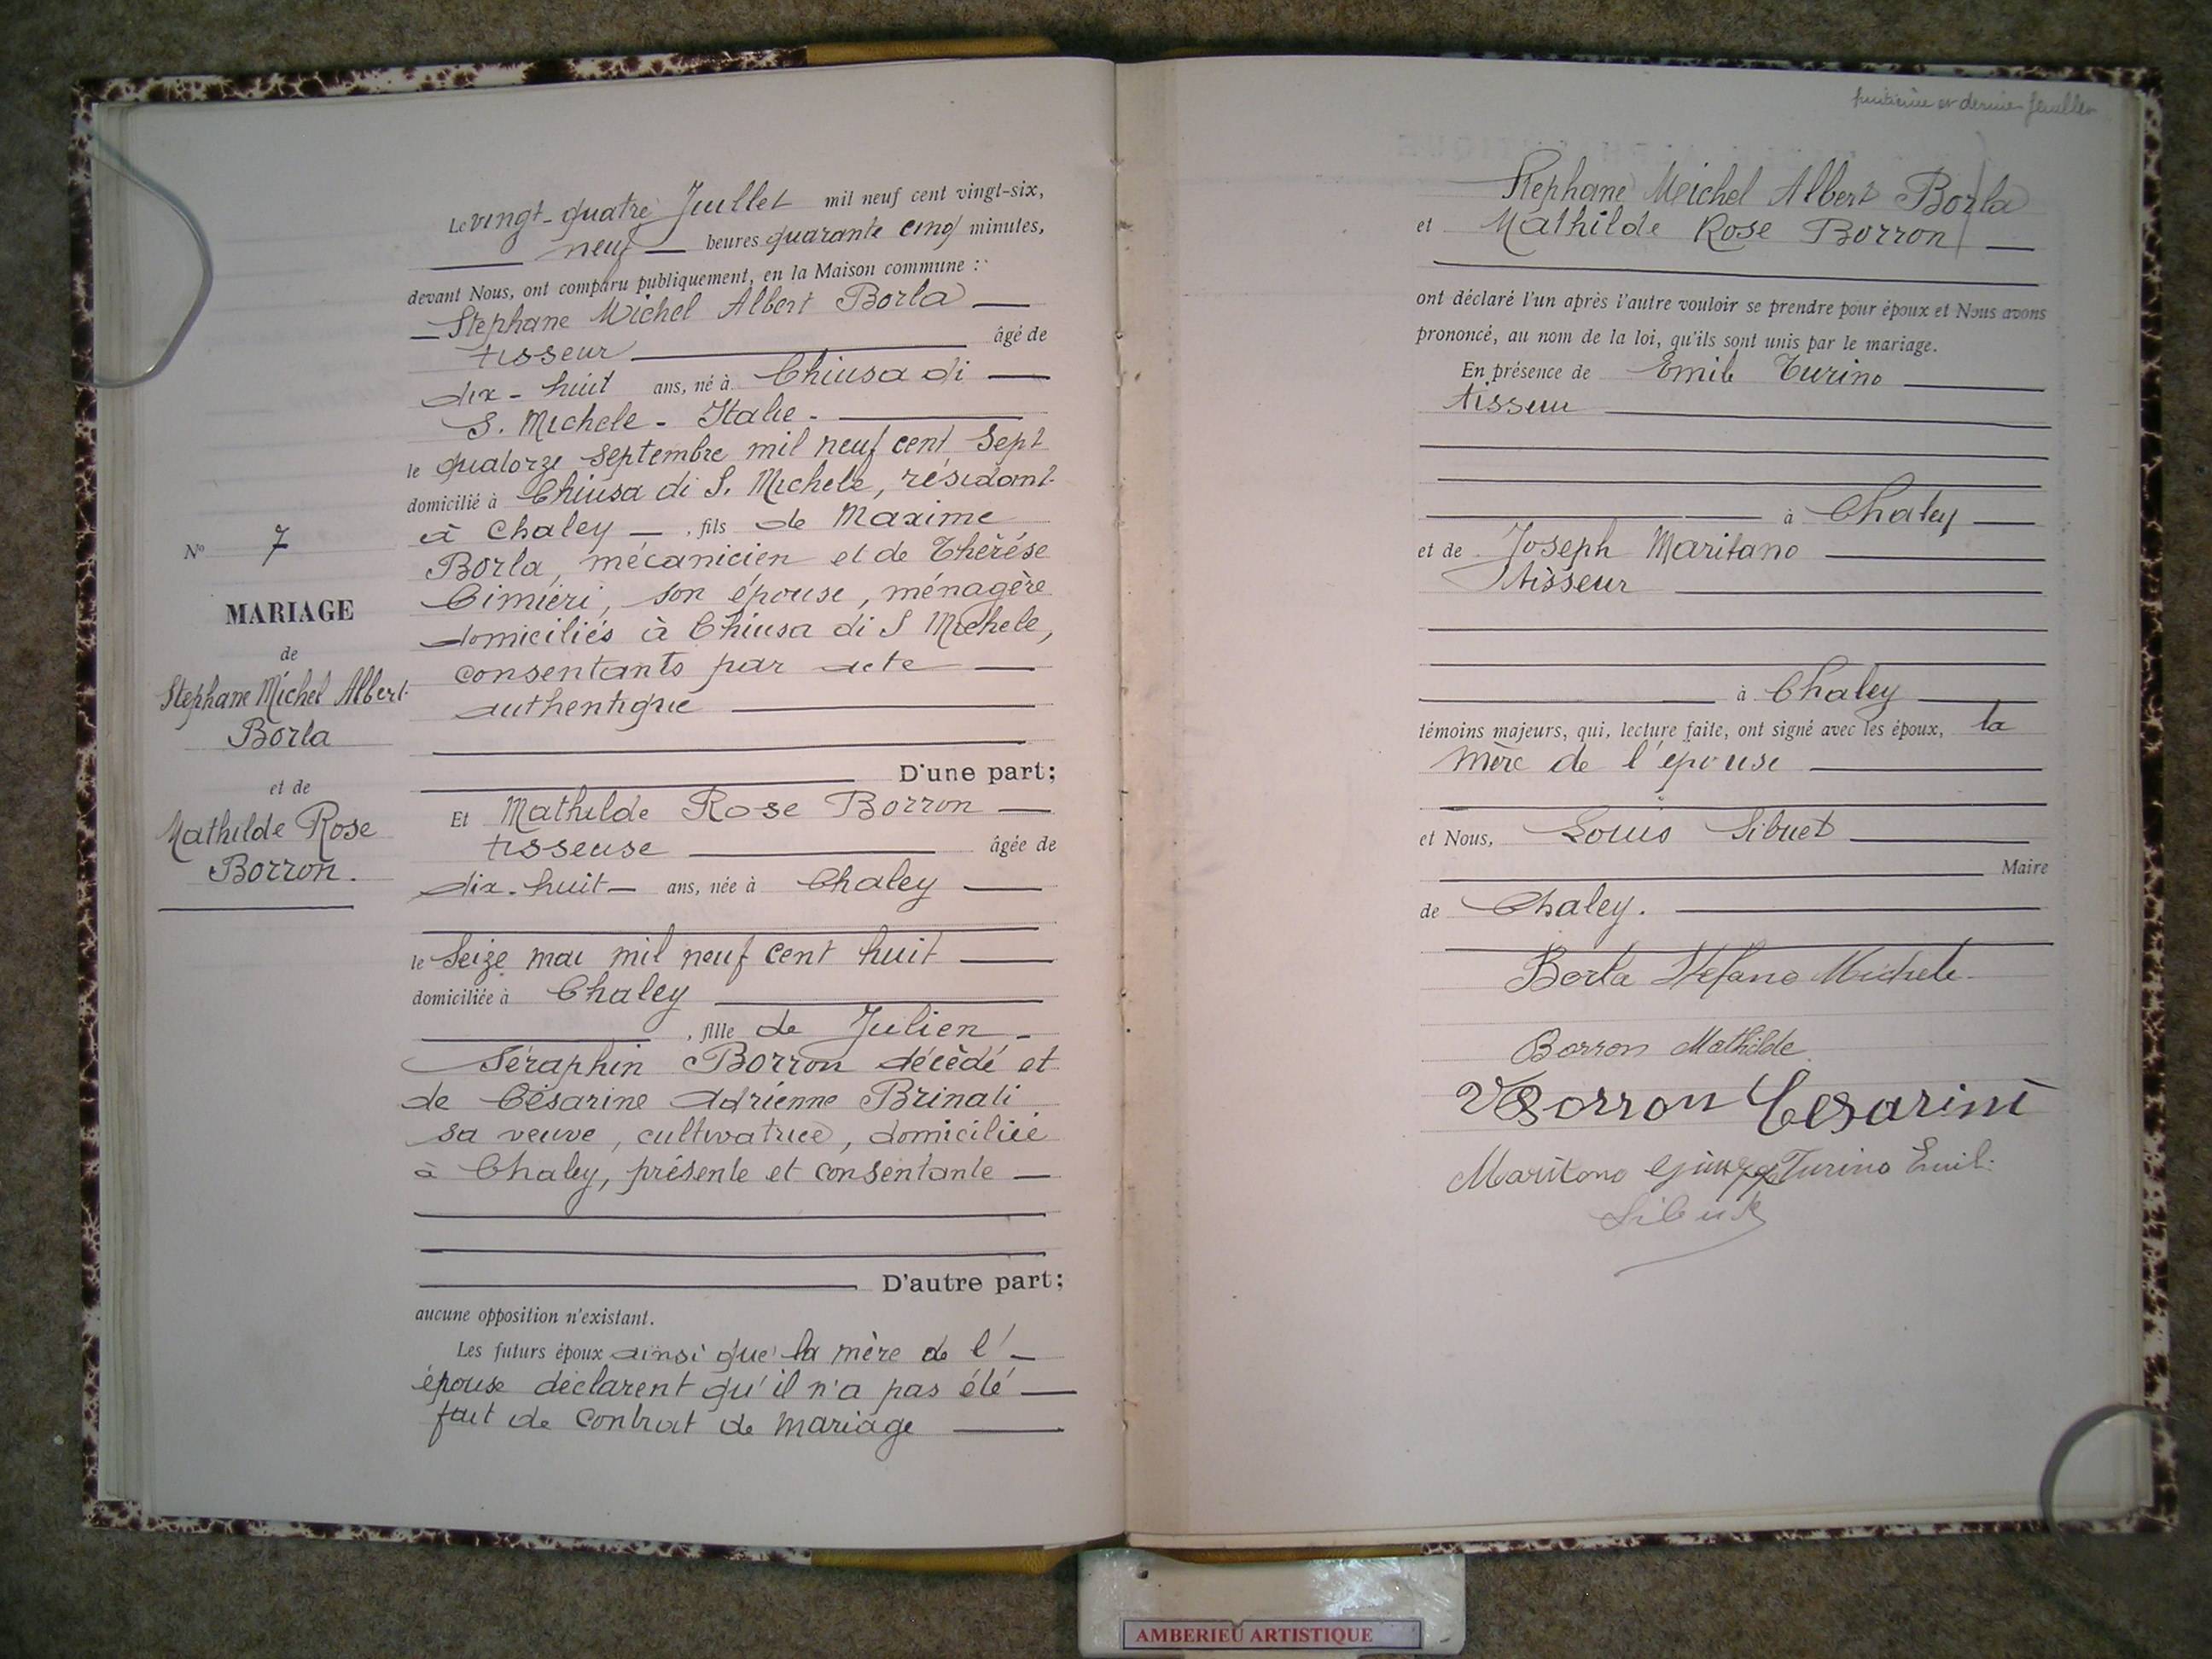 N° 7
MARIAGE
de
Stephane Michel Albert
Borla
et de
Mathilde Rose
Borron.
Le vingt-quatre Juillet mil neuf cent vingt-six,
neuf heures quarante cinq minutes,
devant Nous, ont comparu publiquement, en la Maison commune :
Stephane Michel Albert Borla
tisseur âgé de
dix-huit ans, né à Chiusa di
S. Michele - Italie -
le quatorze septembre mil neuf cent sept
domicilié à Chiusa di S. Michele, résidant
à Chaley, fils de Maxime
Borla, mécanicien et de Thérèse
Cimieri, son épouse, ménagère
domiciliés à Chiusa di S Michele,
consentants par acte
authentique
D'une part;
Et Mathilde Rose Borron
tisseuse âgée de
dix-huit ans, née à Chaley
le seize mai mil neuf cent huit
domiciliée à Chaley
, fille de Julien
Séraphin Borron décédé et
de Césarine Adrienne Brinali
sa veuve, cultivatrice, domiciliée
à Chaley, présente et consentante
D'autre part;
aucune opposition n'existant.
Les futurs époux ainsi que la mère de l'
épouse déclarent qu'il n'a pas été
fait de contrat de mariage
et dernier feuillet
Stephane Michel Albert Borla
et Mathilde Rose Borron
ont déclaré l'un après l'autre vouloir se prendre pour époux et Nous avons
prononcé, au nom de la loi, qu'ils sont unis par le mariage.
En présence de Emile Turino
tisseur
à Chaley
et de Joseph Maritano
tisseur
à Chaley
témoins majeurs, qui, lecture faite, ont signé avec les époux, la
mère de l'épouse
et Nous, Louis Sibuet
Maire
de Chaley.
Borla Stefano Michele
Borron Mathilde
V Borron Cesarine
Maritano Turino Emile
Sibuet
AMBERIEU ARTISTIQUE